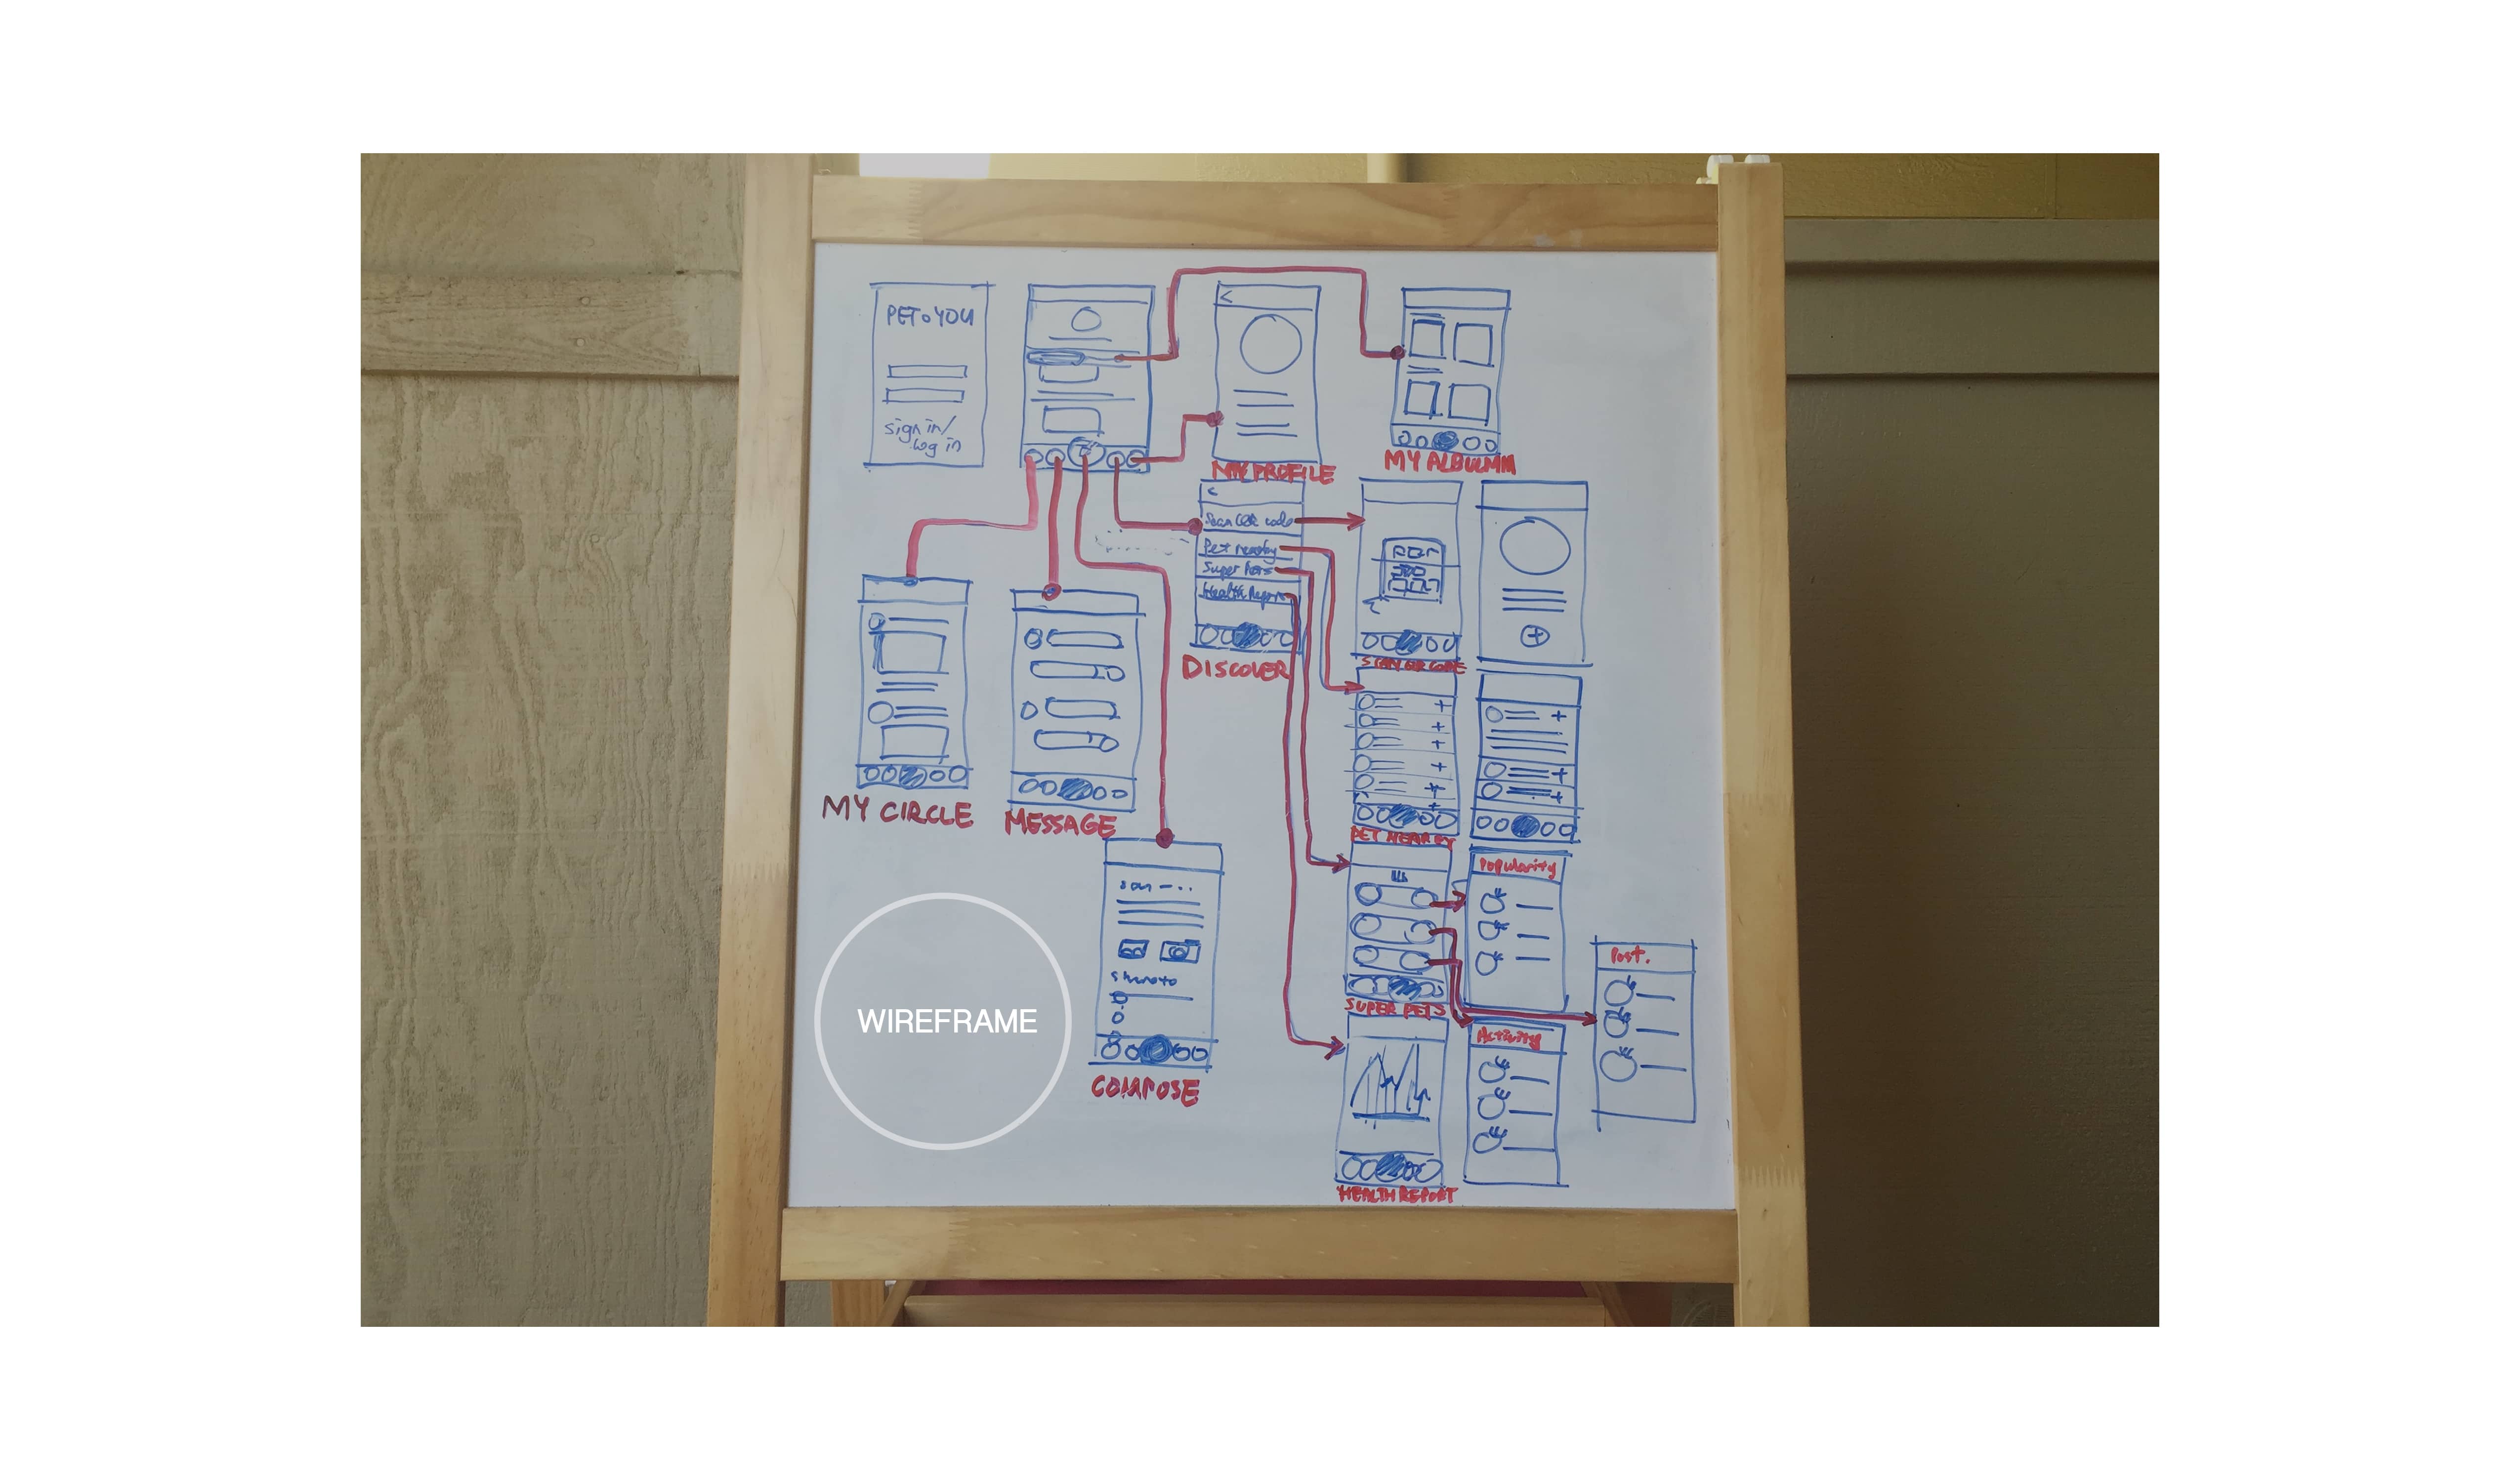 PET2YOU
sign in/
Log in
MY PROFILE
MY ALBUMM
Scan QR code
Pet nearby
Super Pets
Health Report
DISCOVER
SCAN QR CODE
MY CIRCLE
MESSAGE
PET NEARBY
share to
COMPOSE
Popularity
SUPER PETS
Post.
Activity
HEALTH REPORT
WIREFRAME